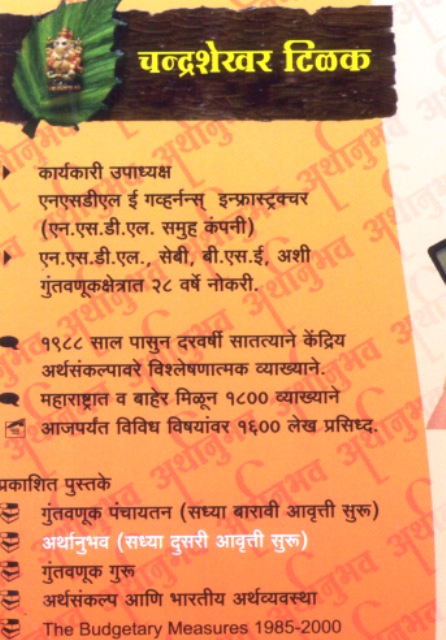 चन्द्रशेखर टिळक
कार्यकारी उपाध्यक्ष
एनएसडीएल ई गव्हर्नन्स् इन्फ्रास्ट्रक्चर
(एन.एस.डी.एल. समुह कंपनी)
एन.एस.डी.एल., सेबी, बी.एस.ई, अशी
गुंतवणूकक्षेत्रात २८ वर्षे नोकरी.
१९८८ साल पासुन दरवर्षी सातत्याने केंद्रिय
अर्थसंकल्पावरे विश्लेषणात्मक व्याख्याने.
महाराष्ट्रात व बाहेर मिळून १८०० व्याख्याने
आजपर्यंत विविध विषयांवर १६०० लेख प्रसिध्द.
प्रकाशित पुस्तके
गुंतवणूक पंचायतन (सध्या बारावी आवृत्ती सुरू)
अर्थानुभव (सध्या दुसरी आवृत्ती सुरू)
गुंतवणूक गुरू
अर्थसंकल्प आणि भारतीय अर्थव्यवस्था
The Budgetary Measures 1985-2000